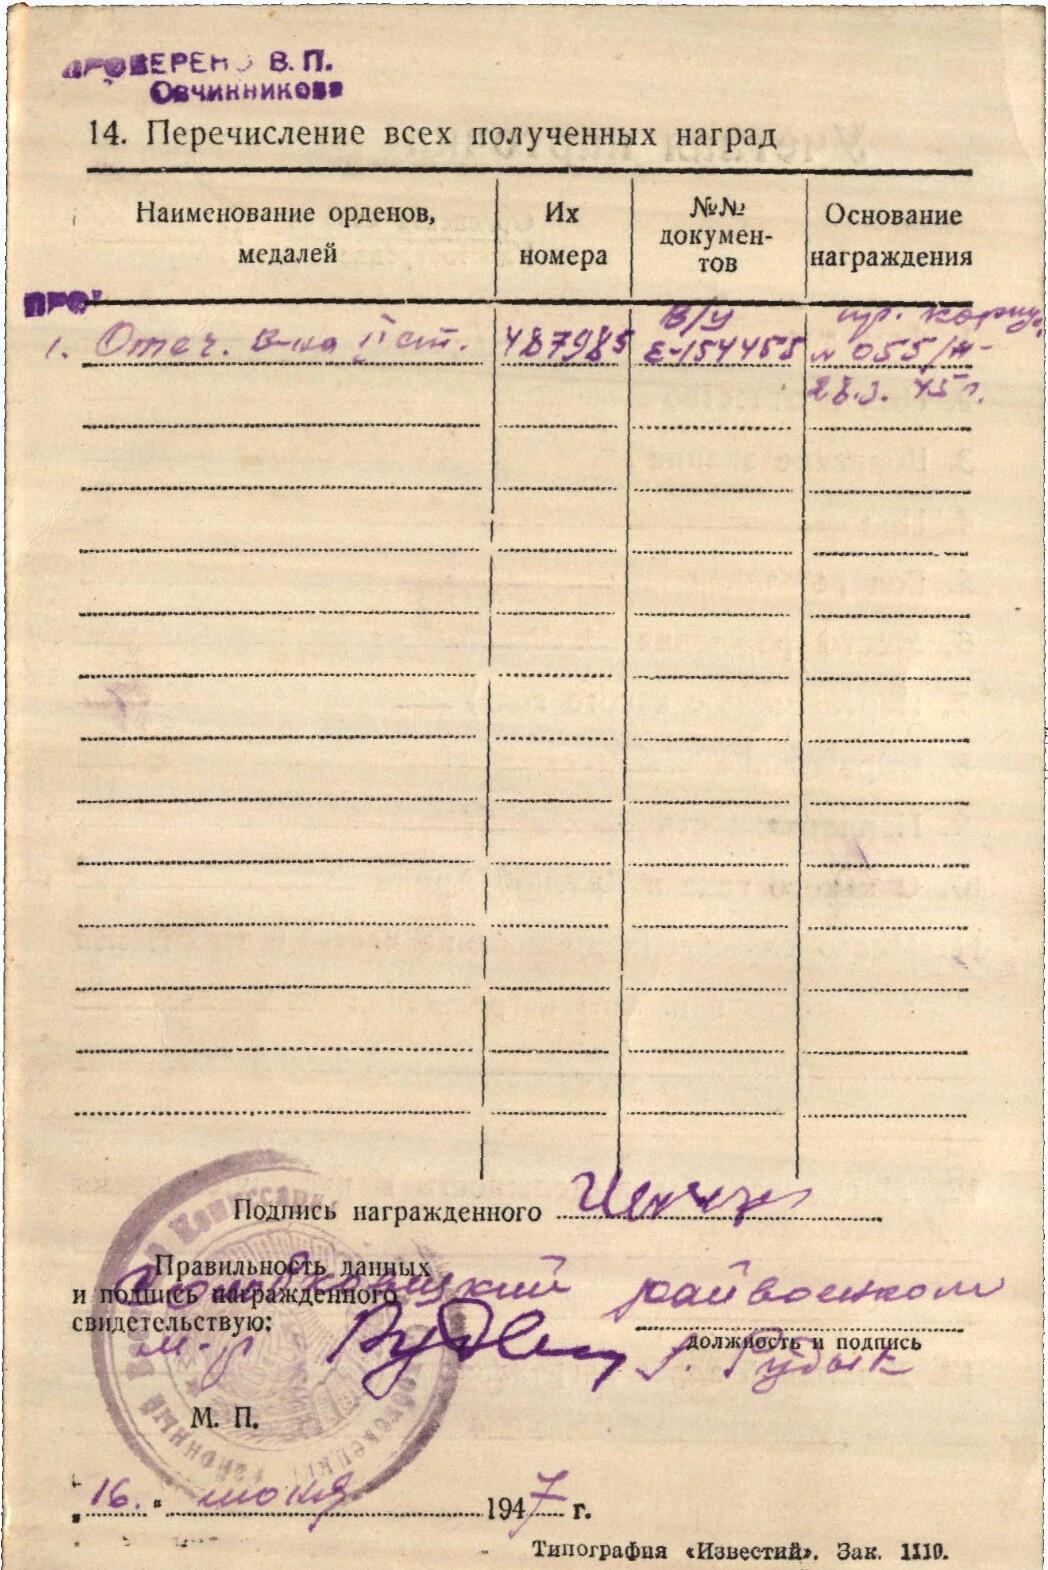 ПРОВЕРЕНО В. П.
Овчинникова
14. Перечисление всех полученных наград
Наименование орденов,
медалей
Их
номера
№№
докумен-
тов
Основание
награждения
ПРО
1. Отеч. В-на II ст.
487985
В/у
Е-154455
пр.
№ 055/н-
28.3. 45 г.
Подпись награжденного
Правильность данных
и подпись награжденного
свидетельствую:
райвоенком
м-р
/. Рудык
должность и подпись
М. П.
„16. “ июня 1947 г.
Типография «Известий». Зак. 1110.